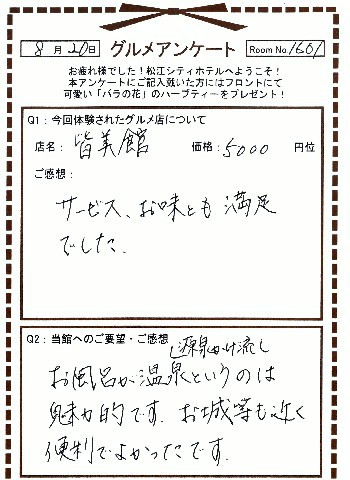 8月20日 グルメアンケート Room No.1601
お疲れ様でした！松江シティホテルへようこそ！
本アンケートにご記入戴いた方にはフロントにて
可愛い「バラの花」のハーブティーをプレゼント！
Q1：今回体験されたグルメ店について
店名： 皆美館 価格： 5000 円位
ご感想：
サービス、お味とも満足
でした。
Q2：当館へのご要望・ご感想
源泉かけ流し
お風呂が温泉というのは
魅力的です。お城等も近く
便利でよかったです。